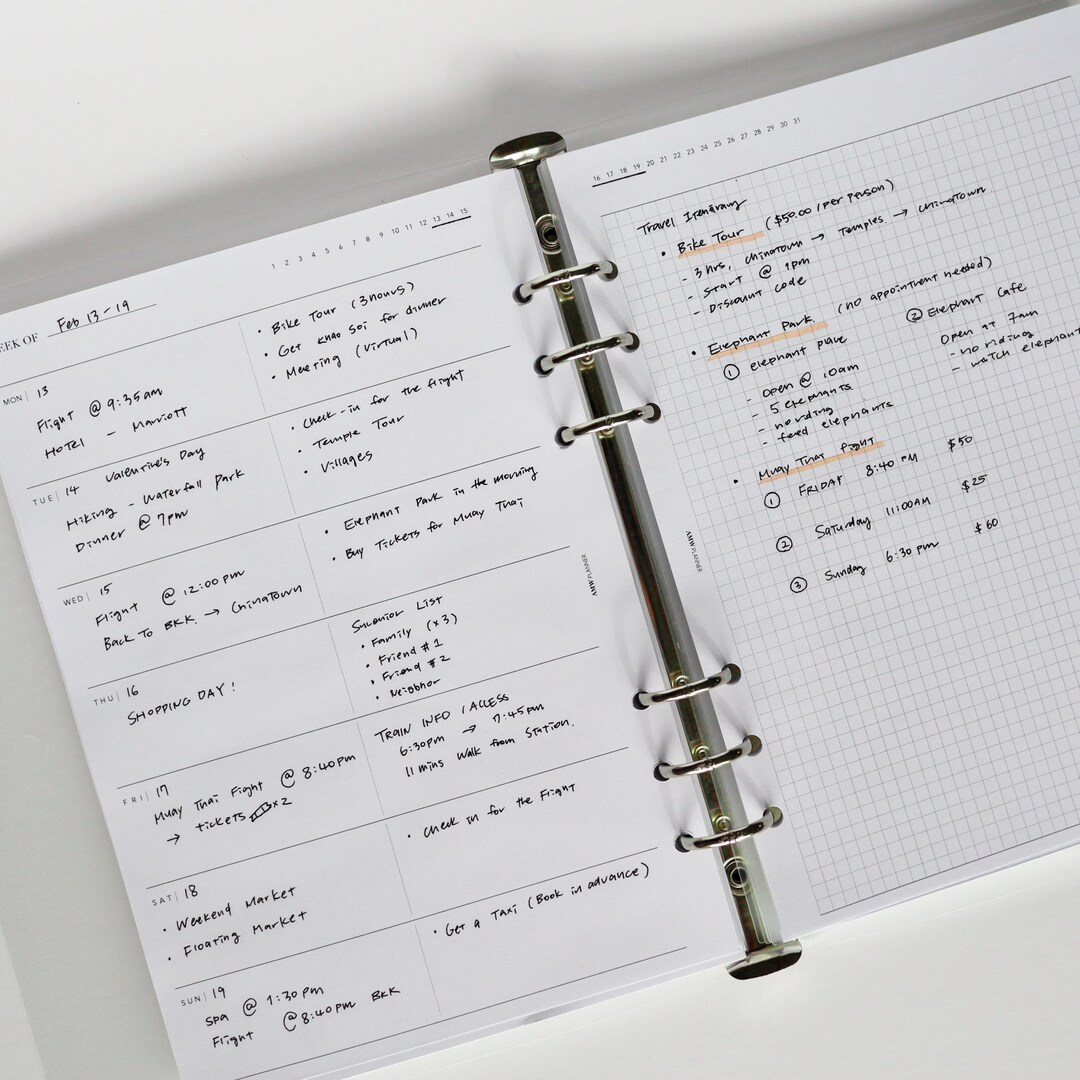 1 2 3 4 5 6 7 8 9 10 11 12 13 14 15
EEK OF Feb 13-19
MON | 13
Flight @ 9:35am
HOTEL - Marriott
• Bike Tour (3hours)
• Get Khao Soi for dinner
• Meeting (Virtual)
TUE | 14 Valentine's Day
Hiking - Waterfall Park
Dinner @ 7pm
• Check-in for the flight
• Temple Tour
• Villages
WED | 15
Flight @ 12:00pm
Back To BKK. → Chinatown
• Elephant Park in the morning
• Buy Tickets for Muay Thai
THU | 16
SHOPPING DAY!
List
• Family (x3)
• Friend #1
• Friend #2
• Neibbhor
FRI | 17
Muay Thai Fight @ 8:40pm
→ tickets x2
TRAIN INFO / ACCESS
6:30pm → 7:45pm
11 mins Walk from Station.
SAT | 18
• Weekend Market
• Floating Market
• Check in for the Flight
SUN | 19
Spa @ 1:30pm
Flight @8:40pm BKK
• Get a Taxi (Book in advance)
AMW PLANNER
16 17 18 19 20 21 22 23 24 25 26 27 28 29 30 31
Travel
• Bike Tour ($50.00 / per person)
- 3 hrs, Chinatown → Temples. → Chinatown
- Start @ 1pm
- Discount code
• Elephant Park. (no appointment needed)
① elephant place
- Open @ 10am
- 5 elephants
- no riding
- feed elephants
② Elephant Cafe
Open at 7am
- no riding
- watch elephant
• Muay Thai Fight
① FRIDAY 8:40 PM $50
② Saturday 11:00AM $25
③ Sunday 6:30 pm $60
AMW PLANNER